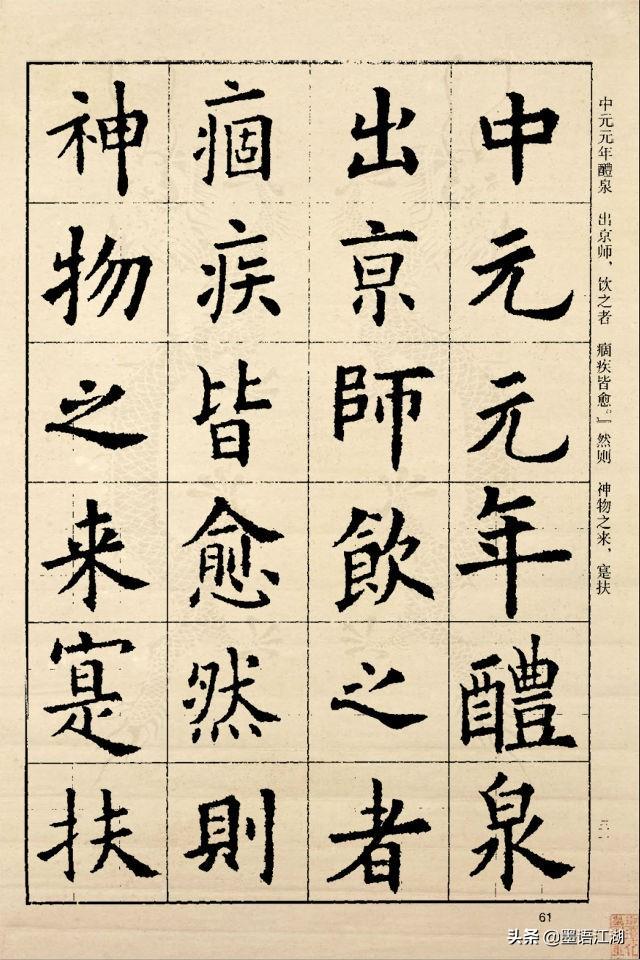 中元元年醴泉
出京師飲之者
痼疾皆愈然則
神物之来寔扶
中元元年醴泉 出京师，饮之者 痼疾皆愈。』然则 神物之来，寔扶
61
头条 @墨语江湖